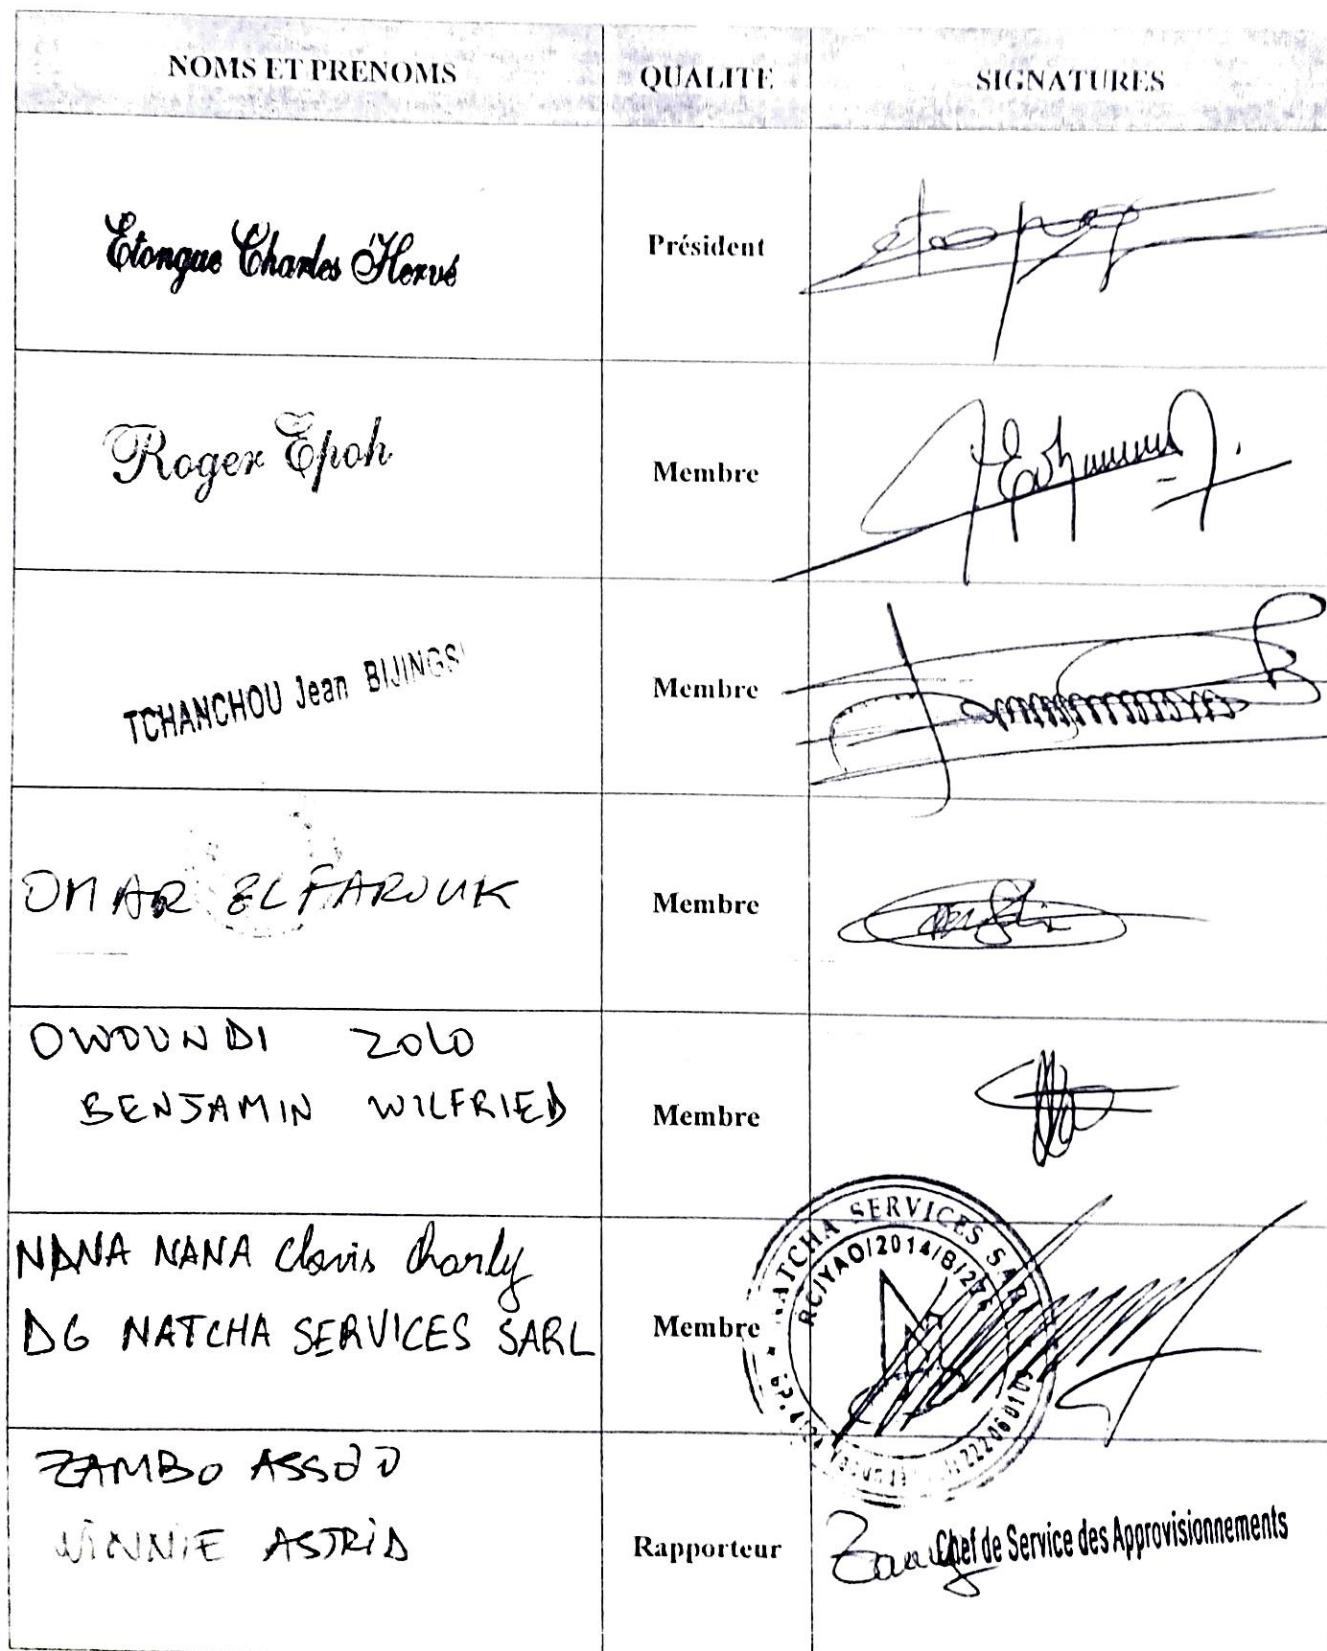 NOMS ET PRENOMS QUALITE SIGNATURES
Etongue Charles Hervé Président
Roger Epoh Membre
TCHANCHOU Jean BIJINGSI Membre
OMAR EL FAROUK Membre
OWOUNDI ZOLO
BENJAMIN WILFRIED Membre
NANA NANA Clovis Charly
DG NATCHA SERVICES SARL Membre
NATCHA SERVICES SARL
RC/YAO/2014/B/27
ZAMBO ASSOO
WINNIE ASTRID Rapporteur
Chef de Service des Approvisionnements